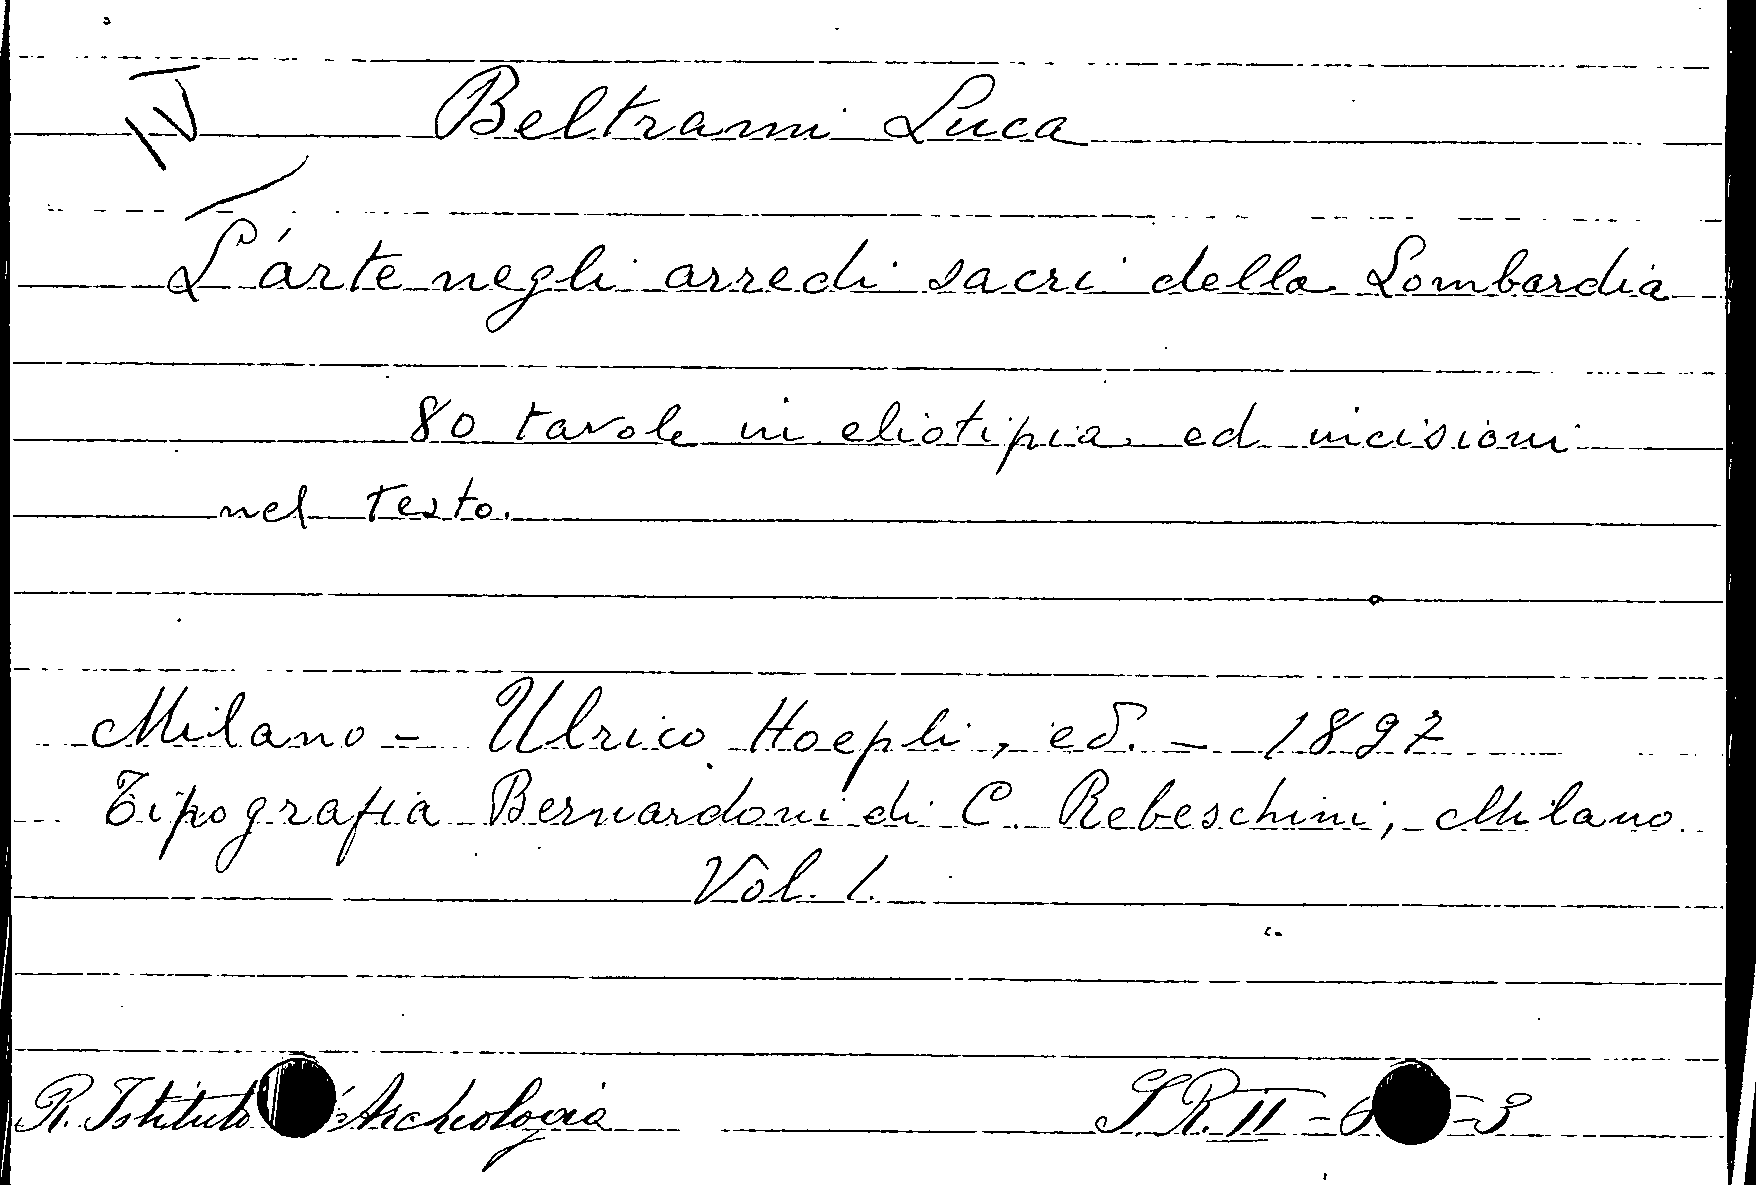 IV
Beltrami Luca
L'arte negli arredi sacri della Lombardia
80 tavole in eliotipia ed incisioni
nel testo.
Milano - Ulrico Hoepli, ed. - 1897
Tipografia Bernardoni di C. Rebeschini, Milano
Vol. 1.
R. Istituto Archeologia
S.R. II - 6 - 3